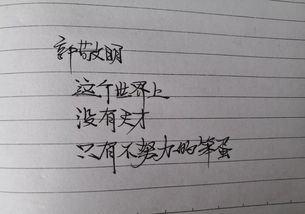 郭敬明
这个世界上
没有天才
只有不努力的笨蛋